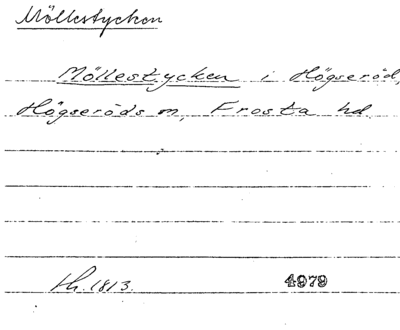 Möllestycken
Möllestycken i Högseröd,
Högseröds sn, Frosta hd.
lh. 1813. 4979